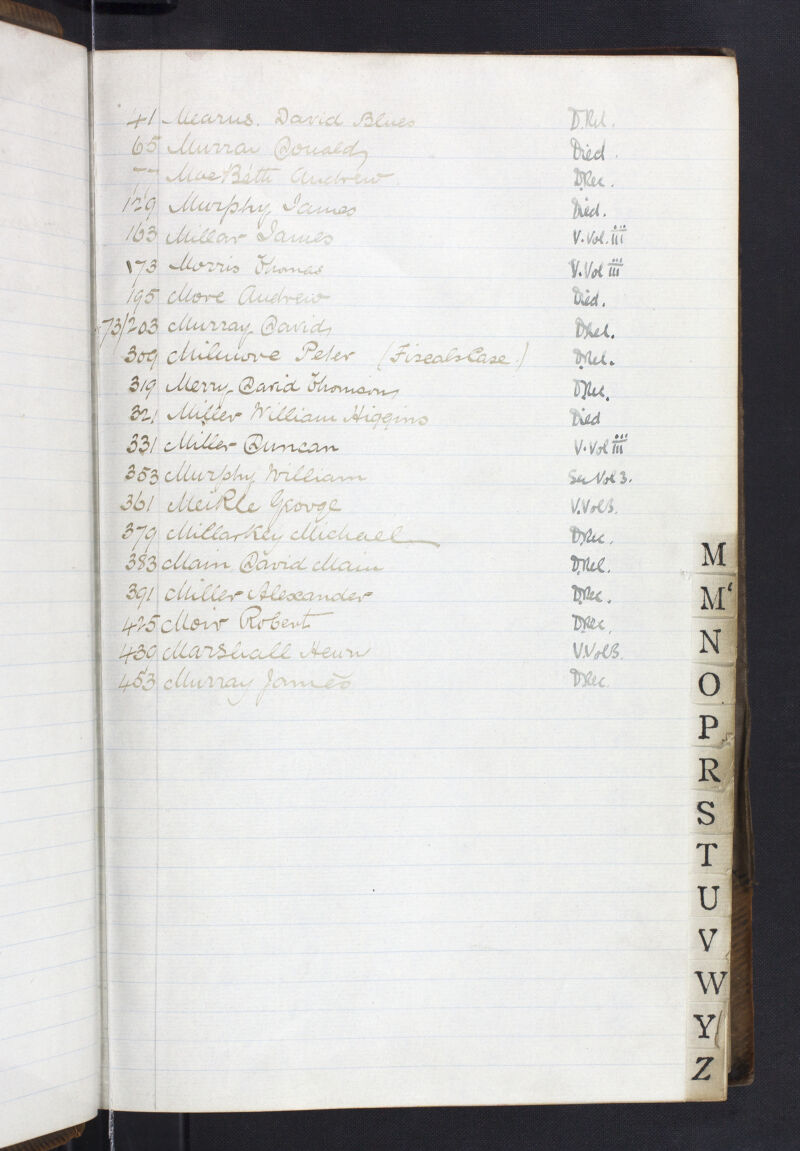 41 Mearns. David Blues D.Rel.
65 Murray Donald Died.
77 MacBeth Andrew. D.Rec.
129 Murphy James Died.
163 Millar James V. Vol. iii
173 Morris Thomas V. Vol iii
195 More Andrew Died.
73/203 Murray David D.Rel.
309 Milmore Peter (Fiscals Case.) D.Rel.
319 Merry David Thomson D.Rec.
321 Miller William Higgins Died
331 Miller Duncan V. Vol iii
353 Murphy William See Vol 3.
361 Meikle George V. Vol 3.
379 Millarkey Michael D.Rec.
383 Main David Main D.Rel.
391 Miller Alexander D.Rec.
425 Moir Robert D.Rec.
439 Marshall Henry V. Vol 3.
453 Murray James D.Rec.
M
M‘
N
O
P
R
S
T
U
V
W
Y
Z